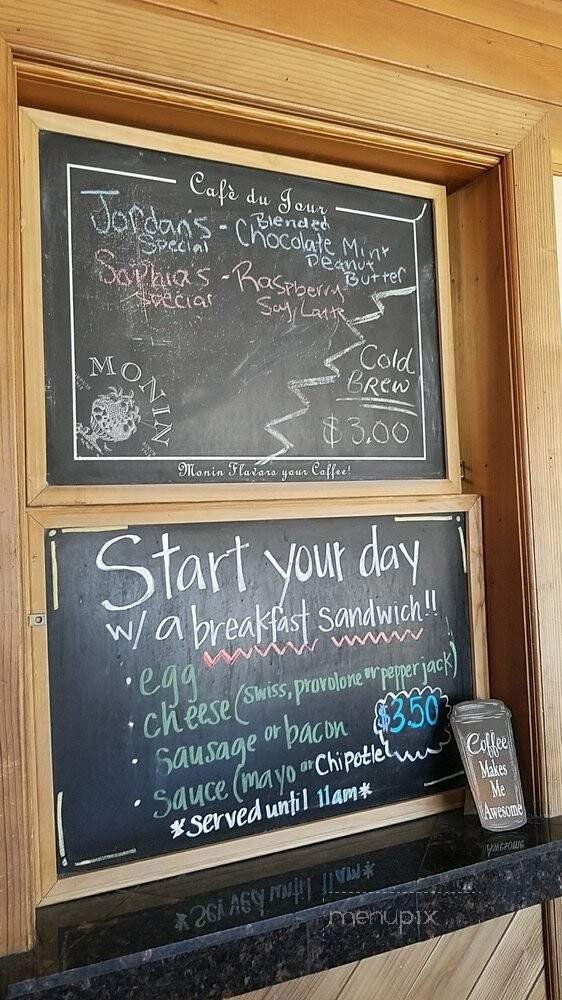 Cafè du Jour
Jordan's - Blended
Special Chocolate Mint
Peanut
Butter
Sophias - Raspberry
Special Soy Latte
Cold
Brew
$3.00
MONIN
Monin Flavors your Coffee!
Start your day
w/ a breakfast sandwich!!
• egg
• cheese (swiss, provolone or pepper jack)
• sausage or bacon
$3.50
• sauce (mayo or Chipotle
*served until 11am*
Coffee
Makes
Me
Awesome
menupix